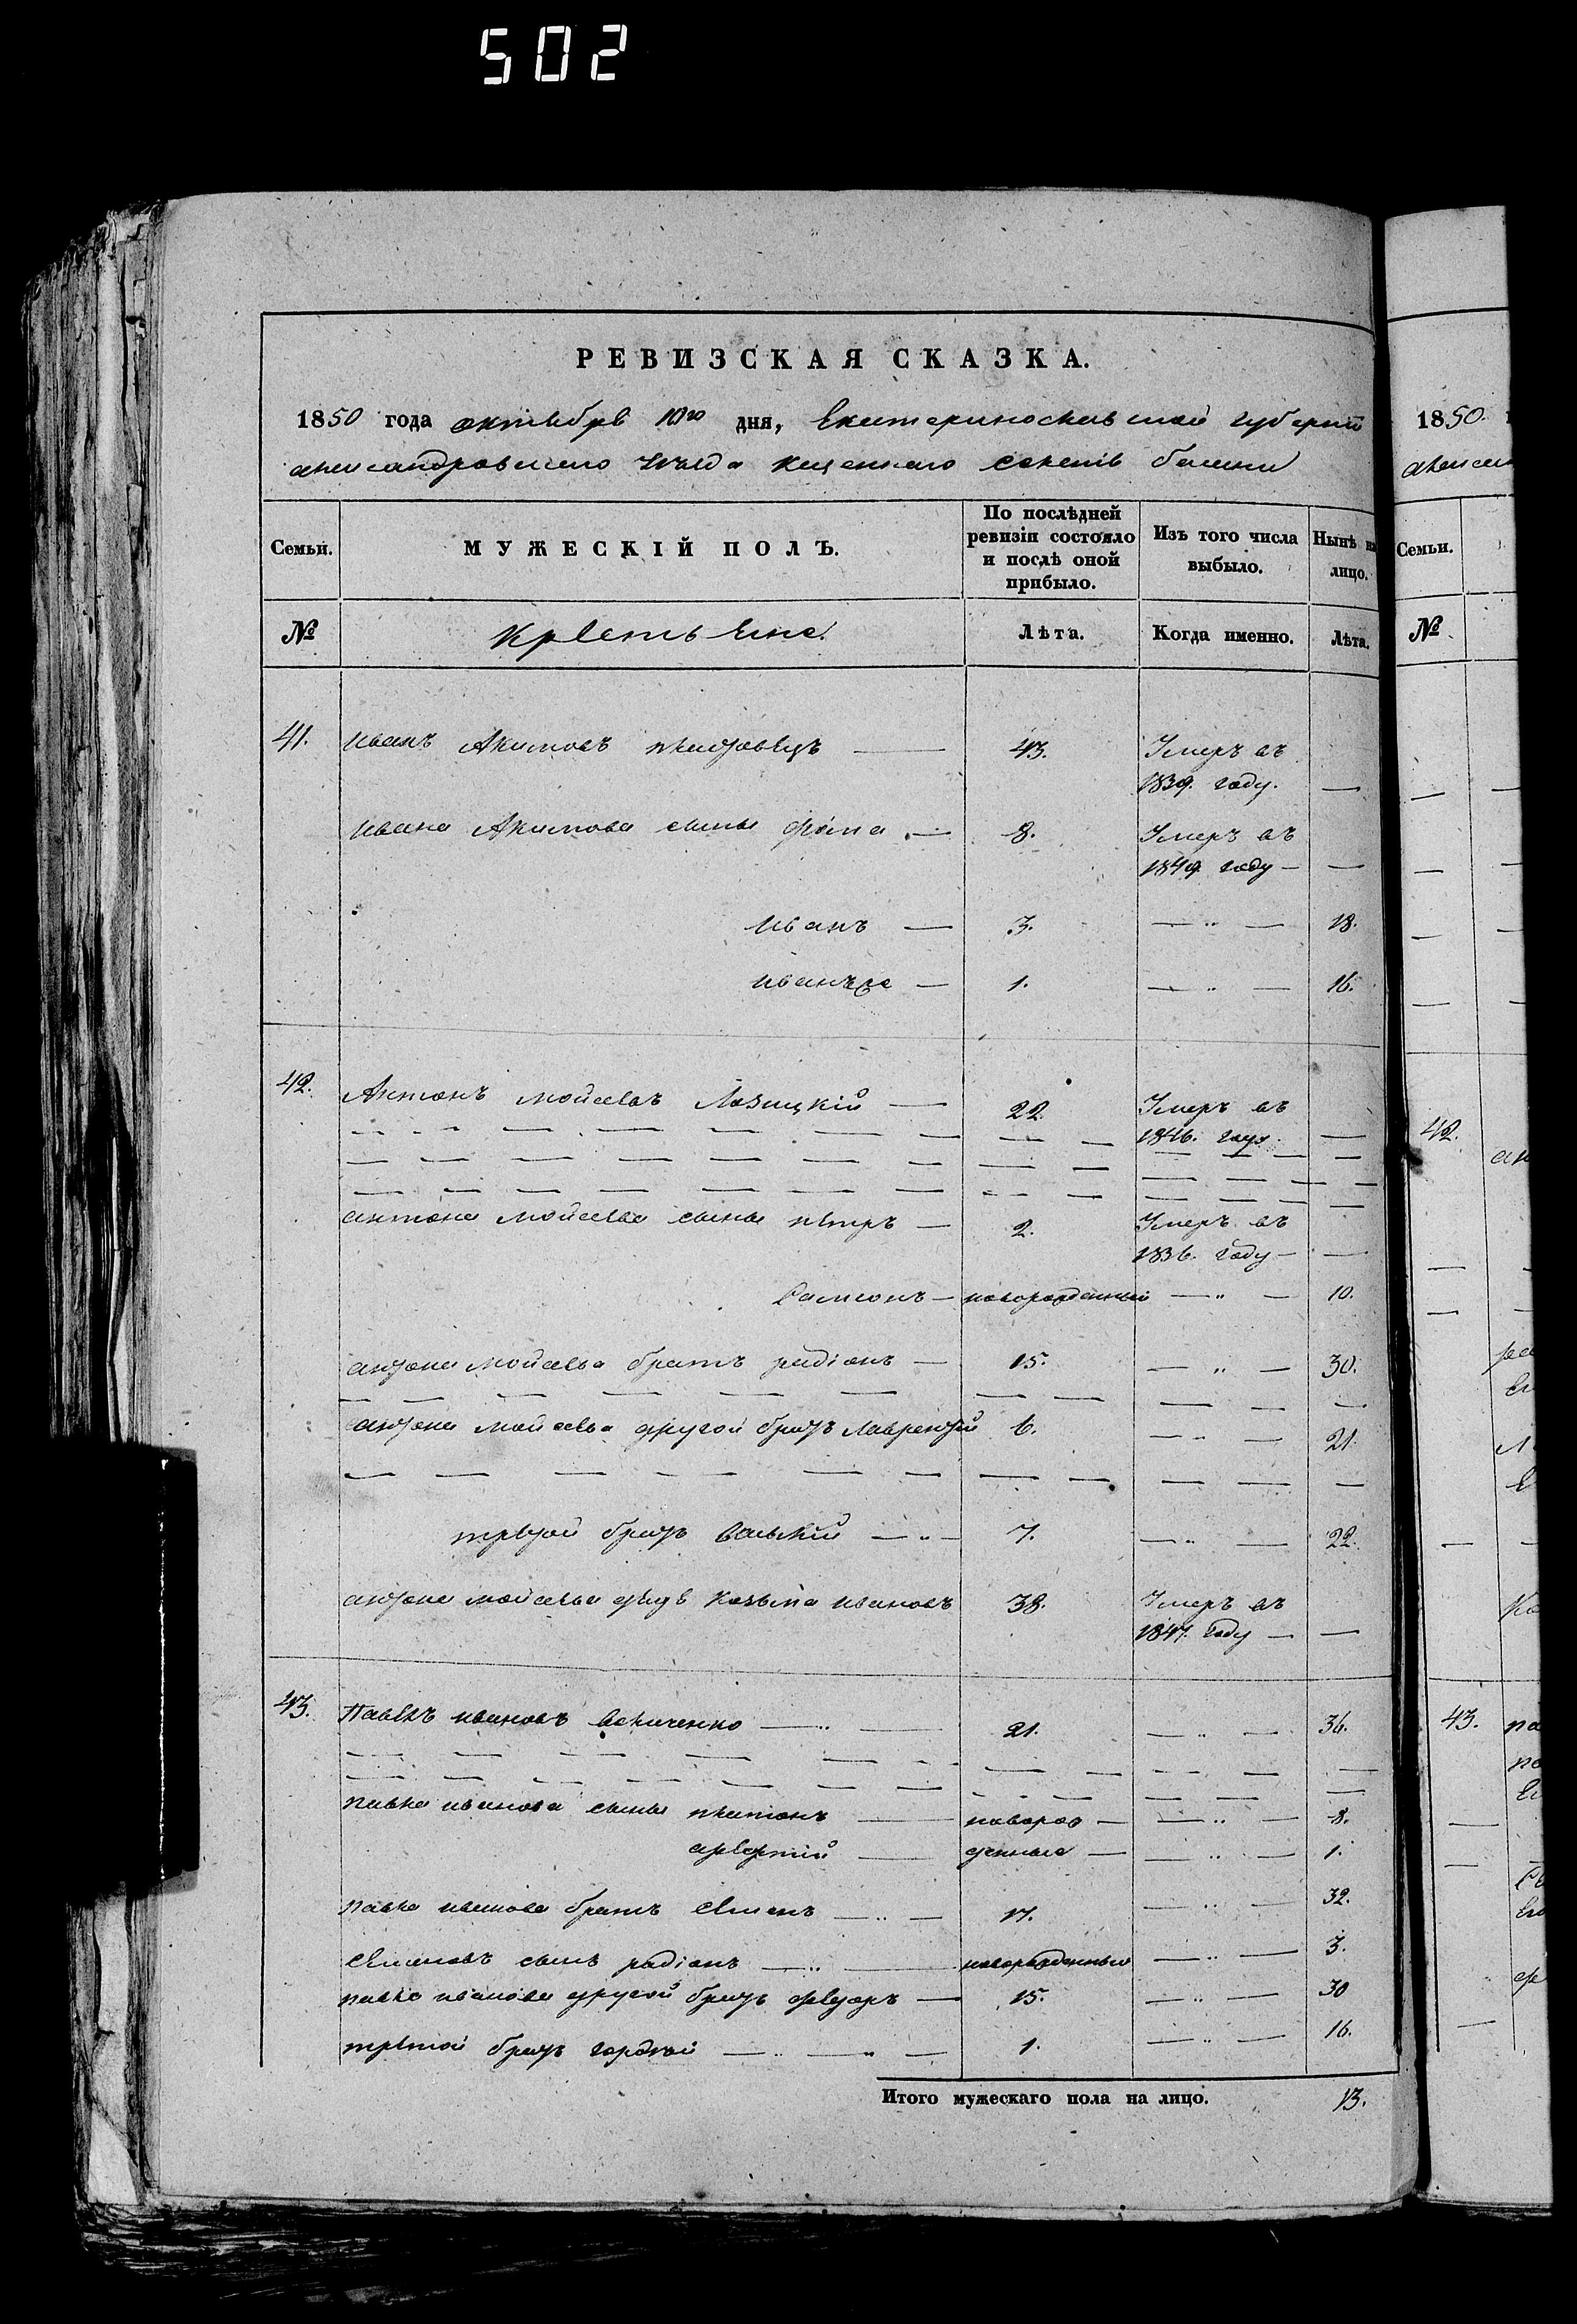 502
РЕВИЗСКАЯ СКАЗКА.
1850 года октября 10го дня, Екатеринославской губерніи
александровскаго уѣзда казеннаго селенія
Семьи.
МУЖЕСКІЙ ПОЛЪ.
По послѣдней ревизіи состояло и послѣ оной прибыло.
Изъ того числа выбыло.
Нынѣ на лицо.
№
Лѣта.
Когда именно.
Лѣта.
41. иванъ Акимовъ — 43. Умеръ въ
1839. году. —
ивана Акимова сыны фома — 8. Умеръ въ
1849 году — —
иванъ — 3. — „ — 18.
1. — „ — 16.
42. Антонъ мойсеевъ Лозицкій — 22. Умеръ въ
1846. году. —
антона мойсеева сыны петръ — 2. Умеръ въ
1836. году — —
Самсонъ — новорожденный — „ — 10.
антона мойсеева братъ радіонъ — 15. — „ — 30.
антона мойсеева другой братъ Лаврентій 6. — „ — 21.
третой братъ василій — „ — 7. — „ — 22.
антона мойсеева дядя козьма ивановъ 38. Умеръ въ
1847. году — —
43. Павелъ ивановъ величенко — „ — 21. — „ — 36.
павла иванова сыны платонъ — новорож — — „ — 8.
— денные — — „ — 1.
павла иванова братъ семенъ — „ — 17. — „ — 32.
семеновъ сынъ радіонъ — „ — новорожденный — „ — 3.
павла иванова другой братъ федоръ — 15. — „ — 30
третой братъ гордѣй — „ — „ — 1. — „ — 16.
Итого мужескаго пола на лицо. 13.
1850.
Семьи.
№
42.
43.